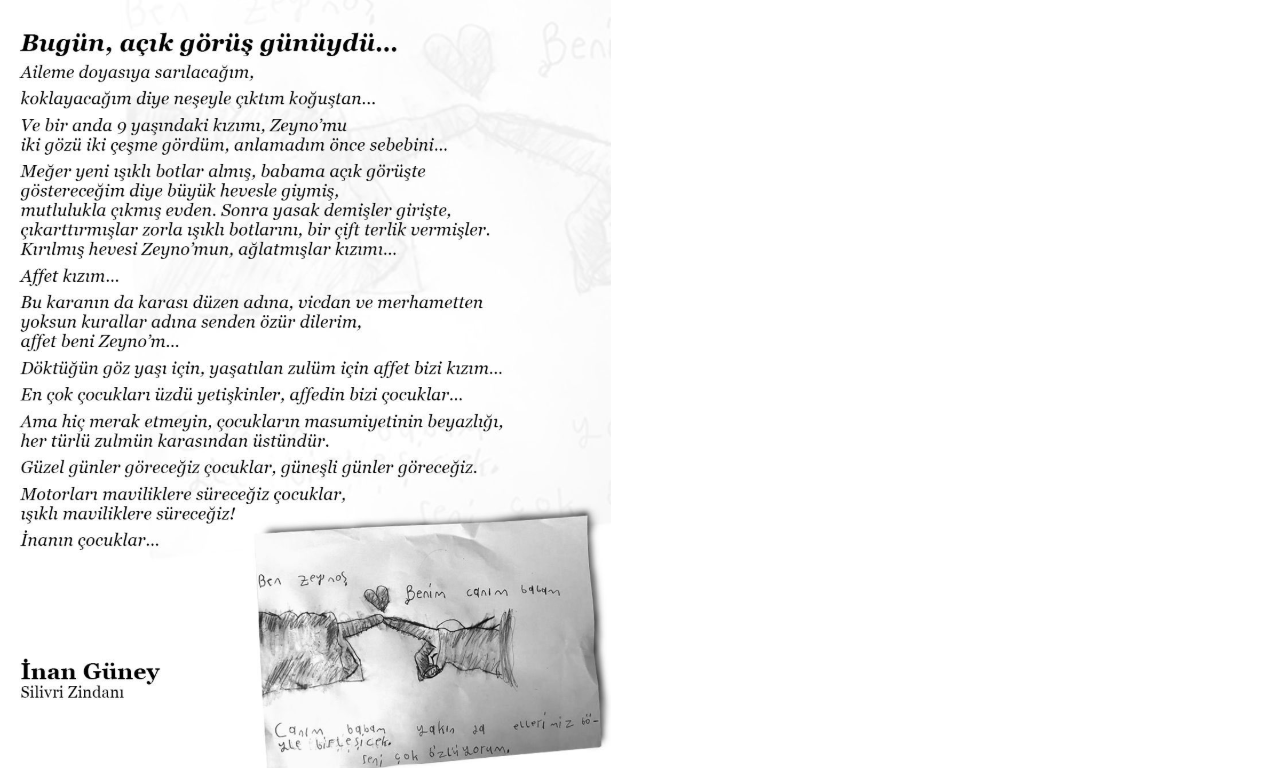 Bugün, açık görüş günüydü...
Aileme doyasıya sarılacağım,
koklayacağım diye neşeyle çıktım koğuştan...
Ve bir anda 9 yaşındaki kızımı, Zeyno’mu
iki gözü iki çeşme gördüm, anlamadım önce sebebini...
Meğer yeni ışıklı botlar almış, babama açık görüşte
göstereceğim diye büyük hevesle giymiş,
mutlulukla çıkmış evden. Sonra yasak demişler girişte,
çıkarttırmışlar zorla ışıklı botlarını, bir çift terlik vermişler.
Kırılmış hevesi Zeyno’mun, ağlatmışlar kızımı...
Affet kızım...
Bu karanın da karası düzen adına, vicdan ve merhametten
yoksun kurallar adına senden özür dilerim,
affet beni Zeyno’m...
Döktüğün göz yaşı için, yaşatılan zulüm için affet bizi kızım...
En çok çocukları üzdü yetişkinler, affedin bizi çocuklar...
Ama hiç merak etmeyin, çocukların masumiyetinin beyazlığı,
her türlü zulmün karasından üstündür.
Güzel günler göreceğiz çocuklar, güneşli günler göreceğiz.
Motorları maviliklere süreceğiz çocuklar,
ışıklı maviliklere süreceğiz!
İnanın çocuklar...
İnan Güney
Silivri Zindanı
Ben Zeynoş
Benim canım babam
Canım babam yakın da ellerimiz bö-
yle birleşicek.
seni çok özlüyorum.